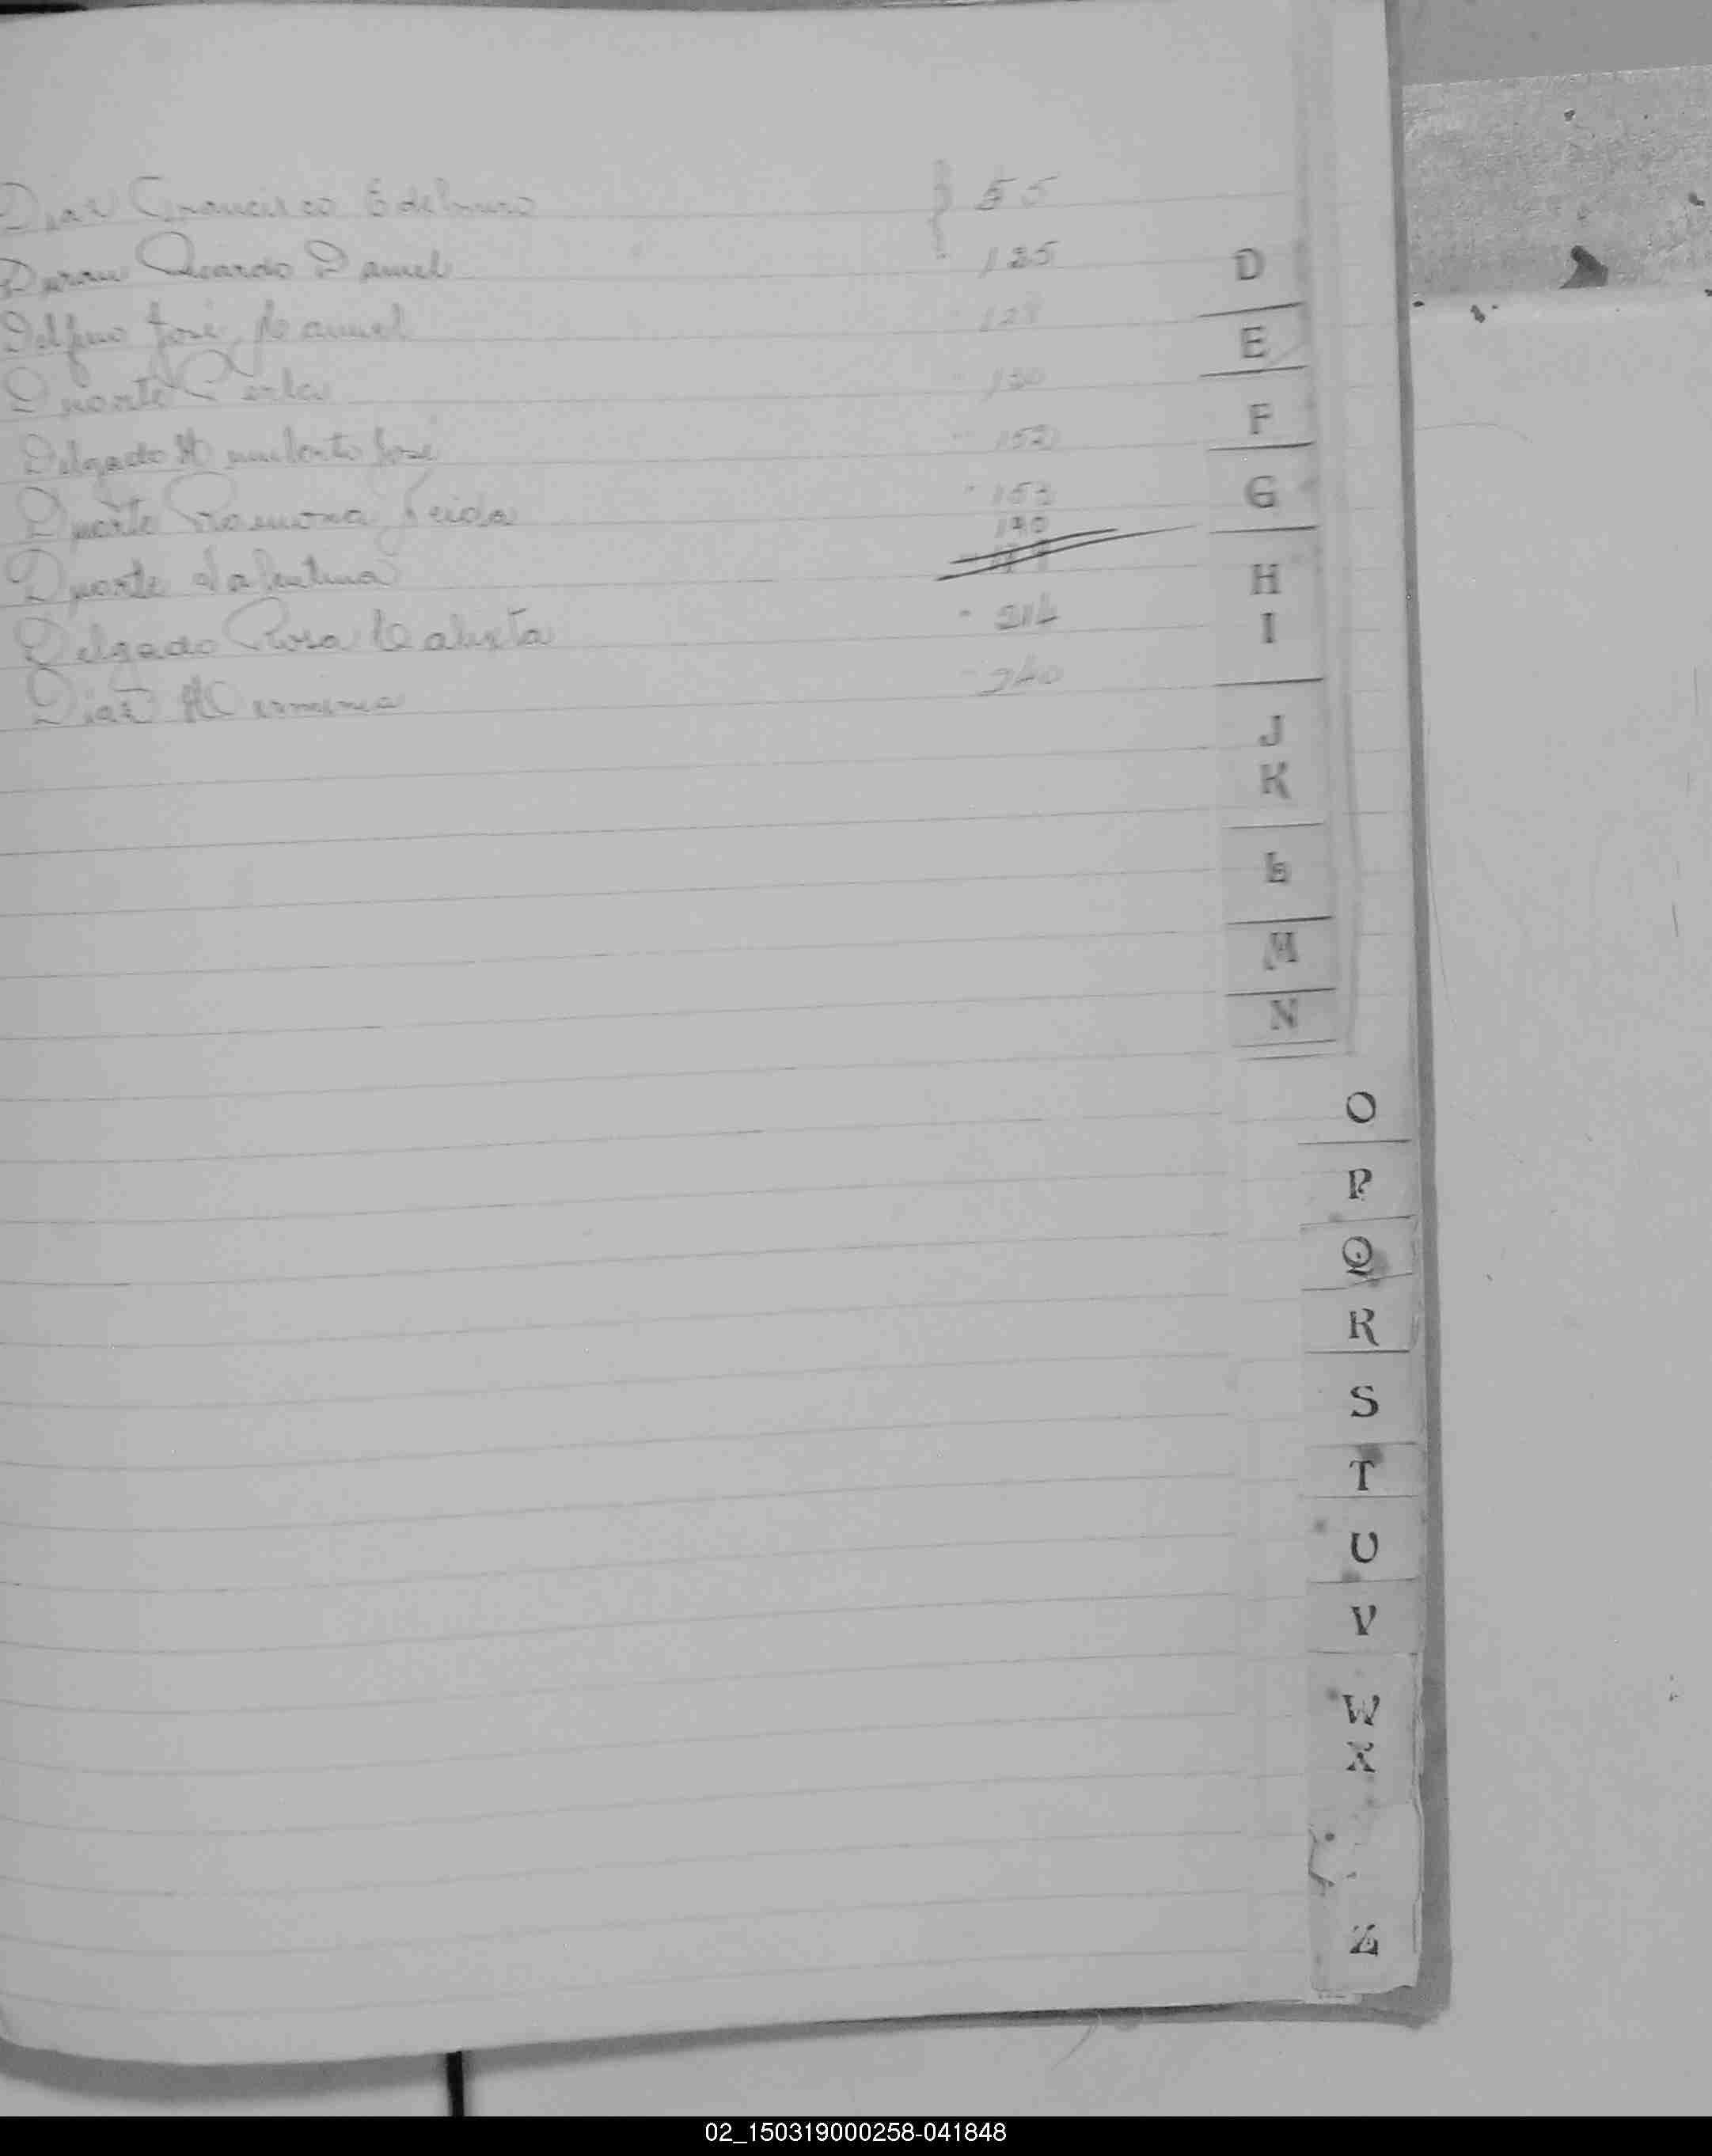 Diaz Francisco Edelmiro 55
Duran Ricardo Daniel 125
Delfino José Manuel 128
Duarte Perla 130
Delgado Humberto José 152
Duarte Ramona Leida 153
190
Duarte Valentina
Delgado Rosa Calixta 214
Diaz Herminia 240
D
E
F
G
H
I
J
K
L
M
N
O
P
Q
R
S
T
U
V
W
X
Z
02_150319000258-041848